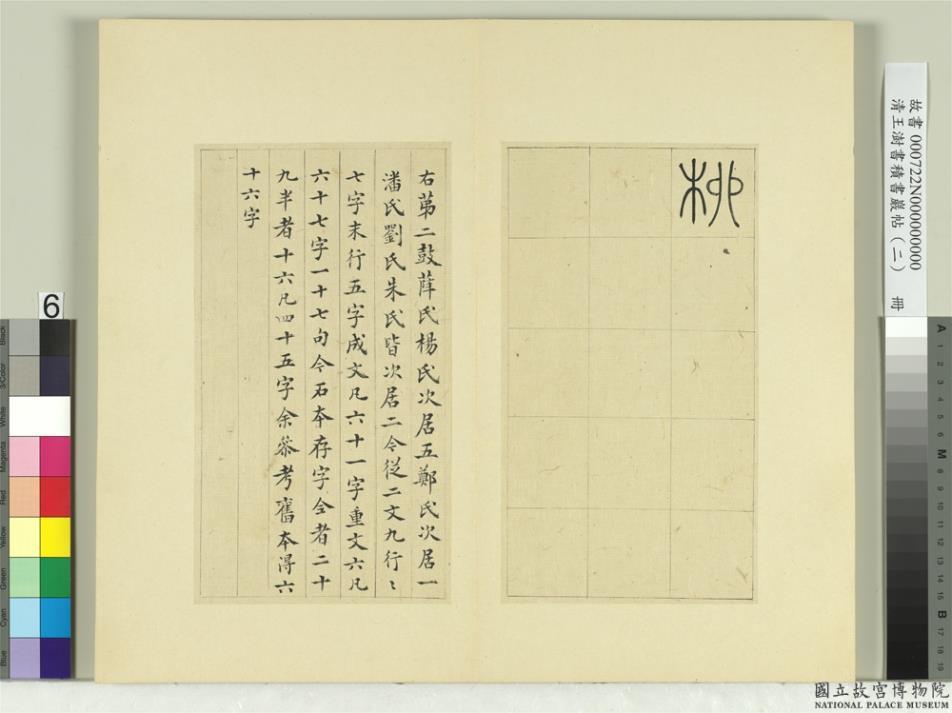 柳
右苐二鼓薛氏楊氏次居五鄭氏次居一
潘氏劉氏朱氏皆次居二今從二文九行〻
七字末行五字成文凡六十一字重文六凡
六十七字一十七句今石本存字全者二十
九半者十六凡四十五字余叅考舊本得六
十六字
故書 000722N000000000
清王澍書積書巖帖（二） 冊
6
Black
3/Color
White
Magenta
Red
Yellow
Green
Cyan
Blue
A 1 2 3 4 5 6 M 8 9 10 11 12 13 14 15 B 17 18 19
國立故宮博物院
NATIONAL PALACE MUSEUM